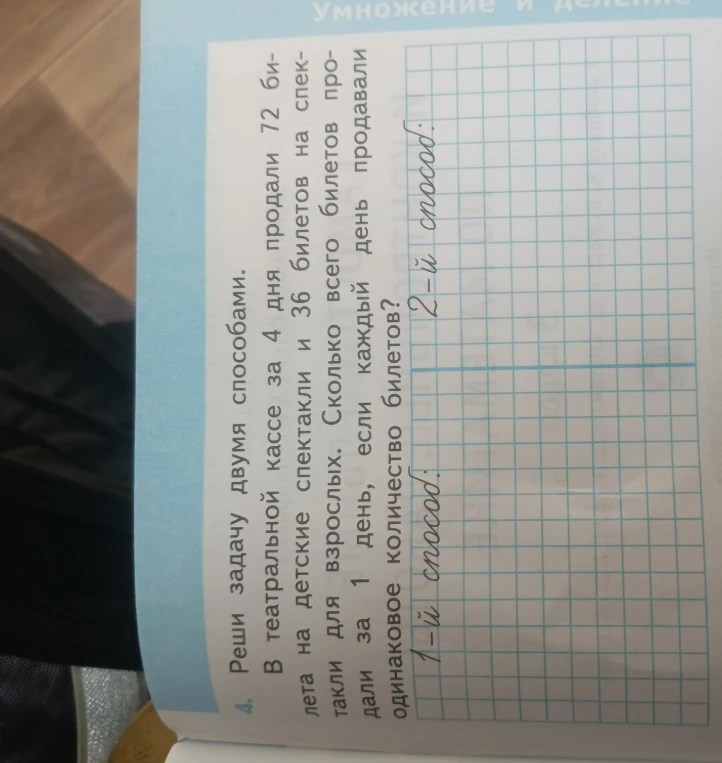 Умножение и деление
4. Реши задачу двумя способами.
В театральной кассе за 4 дня продали 72 би-
лета на детские спектакли и 36 билетов на спек-
такли для взрослых. Сколько всего билетов про-
дали за 1 день, если каждый день продавали
одинаковое количество билетов?
1-й способ: 2-й способ: